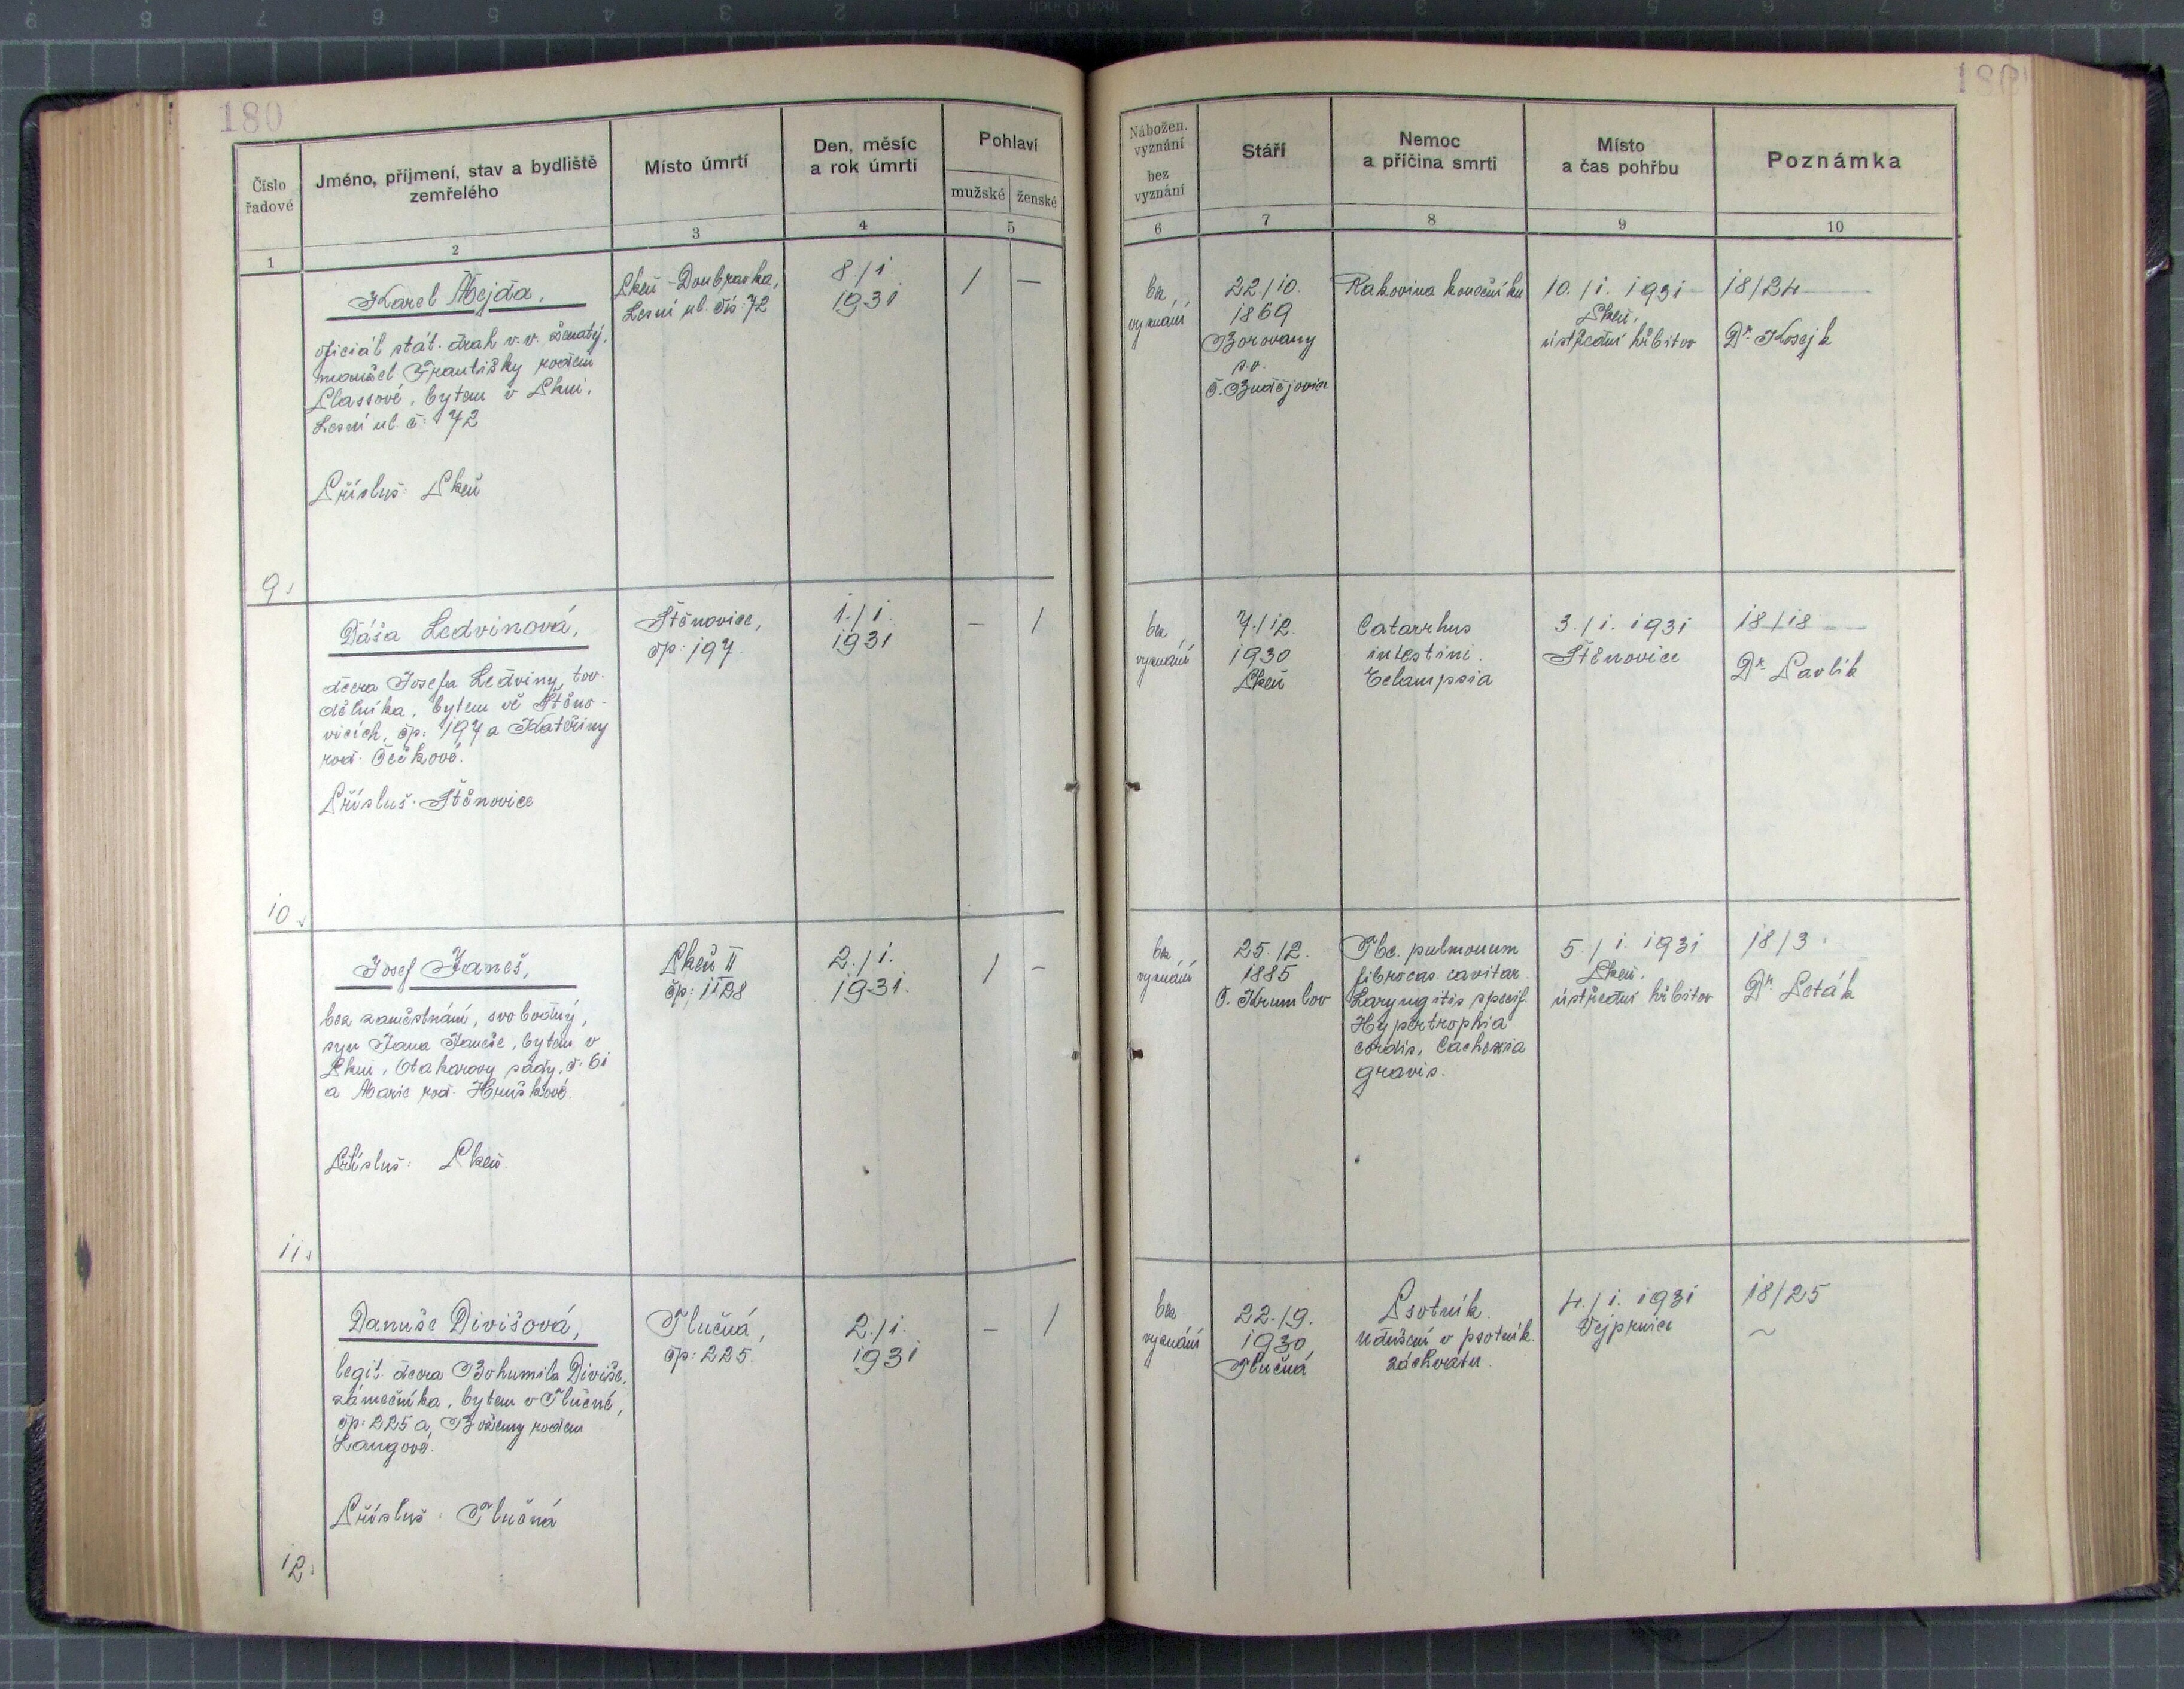 180
180
Číslo řadové
Jméno, příjmení, stav a bydliště
zemřelého
Místo úmrtí
Den, měsíc
a rok úmrtí
Pohlaví
mužské
ženské
Nábožen.
vyznání
bez
vyznání
Stáří
Nemoc
a příčina smrti
Místo
a čas pohřbu
Poznámka
1
2
3
4
5
6
7
8
9
10
9.
Karel Mejda,
oficiál stát. drah v. v. ženatý,
manžel Františky rodem
Plassové, bytem v Plzni,
Lesní ul. č: 72
Přísluš: Plzeň
Plzeň - Doubravka,
Lesní ul. čís: 72
8./1.
1931
/
—
bez
vyznání
22/10.
1869
Borovany
p. o.
Č. Budějovice
Rakovina konečníku
10./1. 1931
Plzeň,
ústřední hřbitov
18/24
Dr. Kosejk
10.
Dáša Ledvinová,
dcera Josefa Ledviny, tov.
dělníka, bytem ve Štěno-
vicích, čp: 197 a Kateřiny
rod. Čečkové.
Přísluš. Štěnovice
Štěnovice,
čp: 197.
1./1.
1931
—
/
bez
vyznání
7./12.
1930
Plzeň
Catarrhus
intestini.
Eclampsia
3./1. 1931
Štěnovice
18/18
Dr. Pavlík
11.
Josef Janeš,
bez zaměstnání, svobodný,
syn Jana Janeše, bytem v
Plzni, Otakarovy sady, č. 61
a Marie rod. Hruškové.
Přísluš: Plzeň.
Plzeň II
čp: 1128
2./1.
1931.
/
–
bez
vyznání
25./2.
1885
Č. Krumlov
Tbc. pulmonum
fibrocas. cavitar.
Laryngitis specif.
Hypertrophia
cordis, Cachexia
gravis.
5./1. 1931
Plzeň,
ústřední hřbitov
18/3.
Dr. Leták
12.
Danuše Divišová,
legit. dcera Bohumila Diviše,
zámečníka, bytem v Tlučné,
čp: 225 a Boženy rodem
Langové.
Přísluš: Tlučná
Tlučná,
čp: 225.
2./1.
1931
–
/
bez
vyznání
22./9.
1930
Tlučná
Psotník.
Udušení v psotník.
záchvatu.
4./1. 1931
Vejprnice
18/25
~